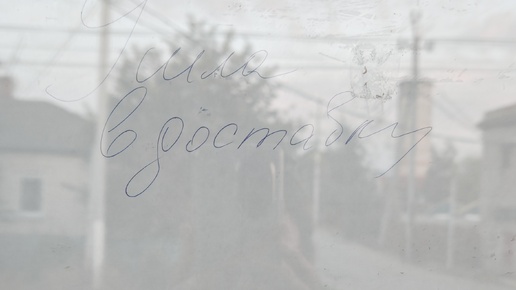 Ушла
в доставку